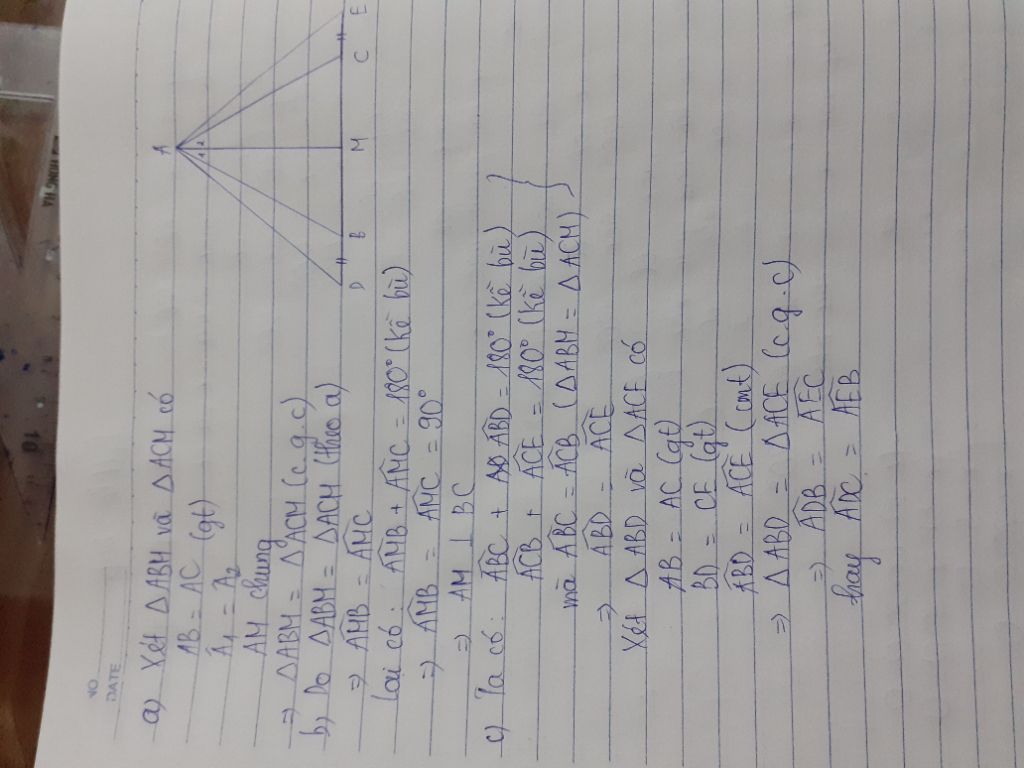 NO.
DATE
a) Xét △ABM và △ACM có
AB = AC (gt)
Â₁ = Â₂
AM chung
⇒ △ABM = △ACM (c.g.c)
b) Do △ABM = △ACM (theo a)
⇒ \widehat{AMB} = \widehat{AMC}
Lại có: \widehat{AMB} + \widehat{AMC} = 180° (kề bù)
⇒ \widehat{AMB} = \widehat{AMC} = 90°
⇒ AM ⊥ BC
c) Ta có: \widehat{ABC} + \widehat{ABD} = 180° (kề bù)
\widehat{ACB} + \widehat{ACE} = 180° (kề bù)
mà \widehat{ABC} = \widehat{ACB} (△ABM = △ACM)
⇒ \widehat{ABD} = \widehat{ACE}
Xét △ABD và △ACE có
AB = AC (gt)
BD = CE (gt)
\widehat{ABD} = \widehat{ACE} (cmt)
⇒ △ABD = △ACE (c.g.c)
⇒ \widehat{ADB} = \widehat{AEC}
hay \widehat{ADC} = \widehat{AEB}
A
1 2
D B M C E